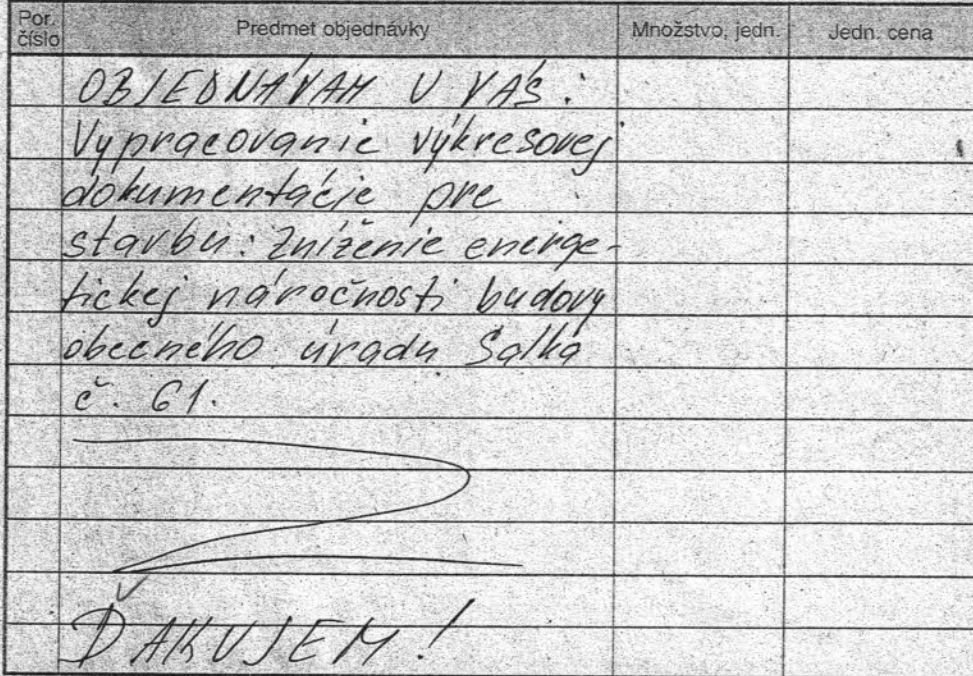 Por. číslo Predmet objednávky Množstvo, jedn. Jedn. cena
OBJEDNÁVAM U VÁS:
Vypracovanie výkresovej
dokumentácie pre
stavbu: Zníženie energe-
tickej náročnosti budovy
obecného úradu Salka
č. 61.
ĎAKUJEM!